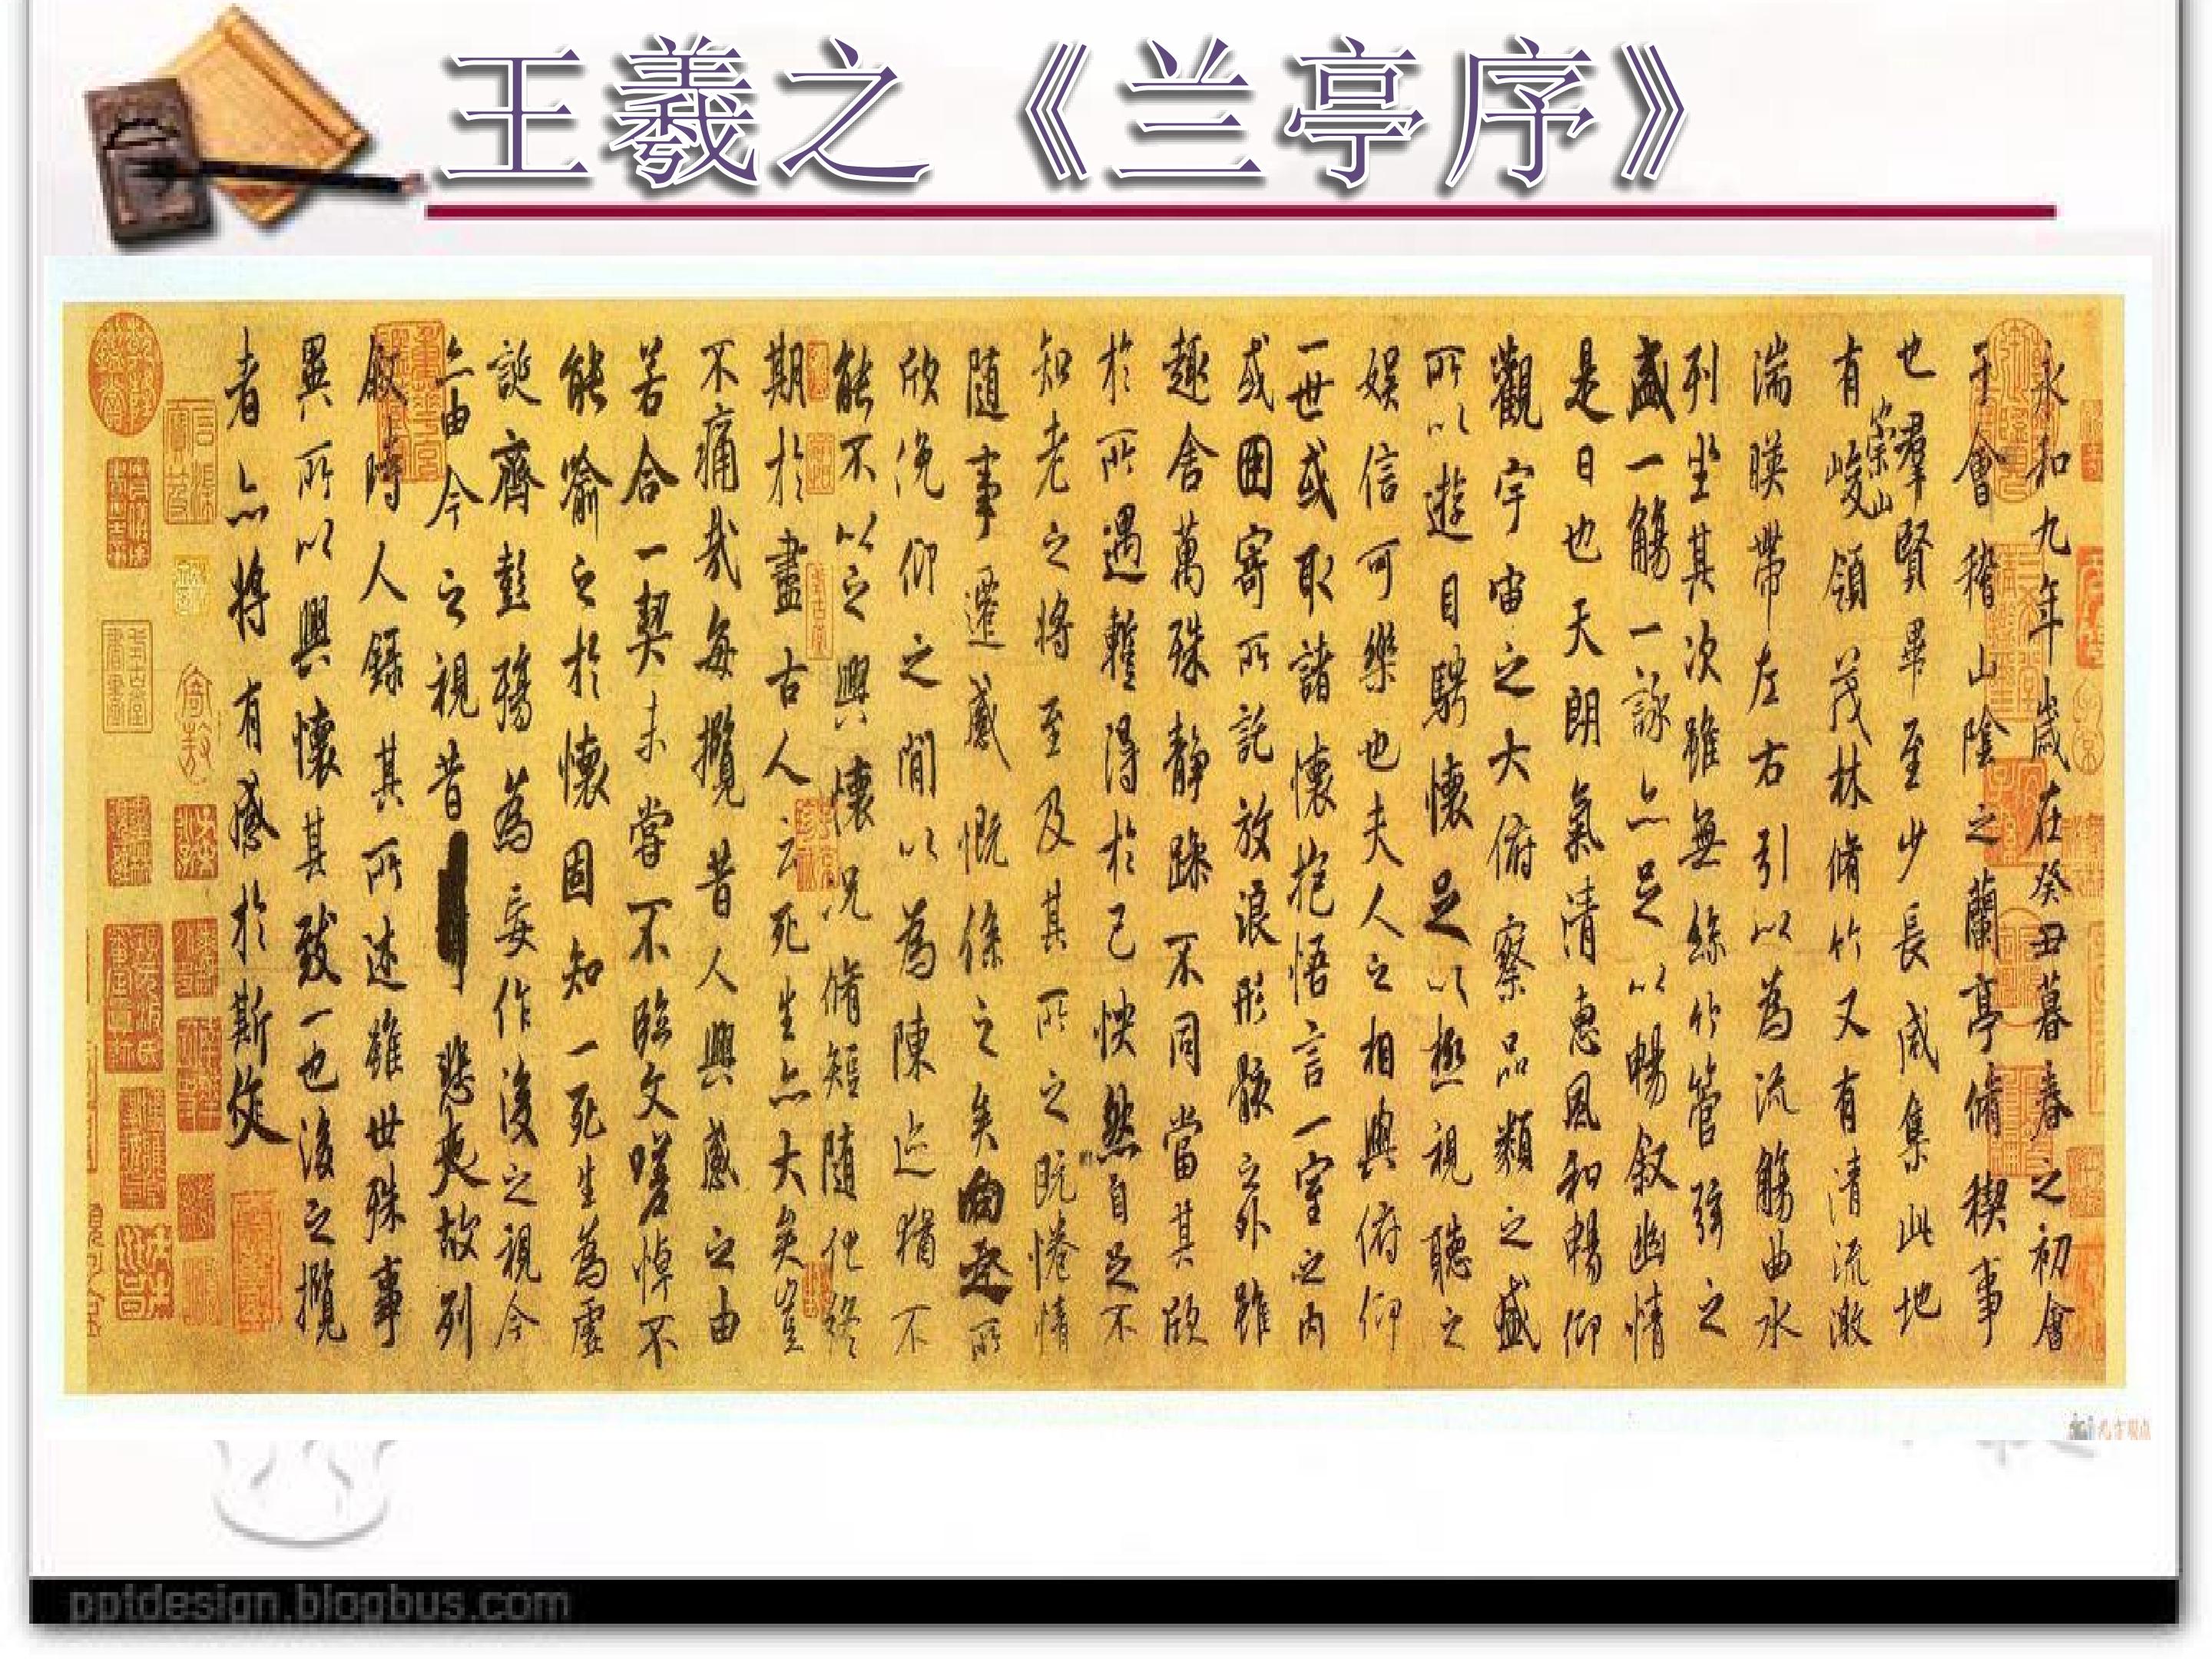 王羲之《兰亭序》
永和九年歲在癸丑暮春之初會
于會稽山陰之蘭亭脩稧事
也羣賢畢至少長咸集此地
有崇山峻領茂林脩竹又有清流激
湍暎帶左右引以為流觴曲水
列坐其次雖無絲竹管弦之
盛一觴一詠亦足以暢叙幽情
是日也天朗氣清惠風和暢仰
觀宇宙之大俯察品類之盛
所以遊目騁懷足以極視聽之
娛信可樂也夫人之相與俯仰
一世或取諸懷抱悟言一室之內
或因寄所託放浪形骸之外雖
趣舍萬殊靜躁不同當其欣
於所遇蹔得於己怏然自足不
知老之將至及其所之既惓情
隨事遷感慨係之矣向之所
欣俛仰之閒以為陳迹猶不
能不以之興懷況脩短隨化終
期於盡古人云死生亦大矣豈
不痛哉每攬昔人興感之由
若合一契未嘗不臨文嗟悼不
能喻之於懷固知一死生為虛
誕齊彭殤為妄作後之視今
亦由今之視昔悲夫故列
叙時人錄其所述雖世殊事
異所以興懷其致一也後之攬
者亦將有感於斯文
pptdesign.blogbus.com